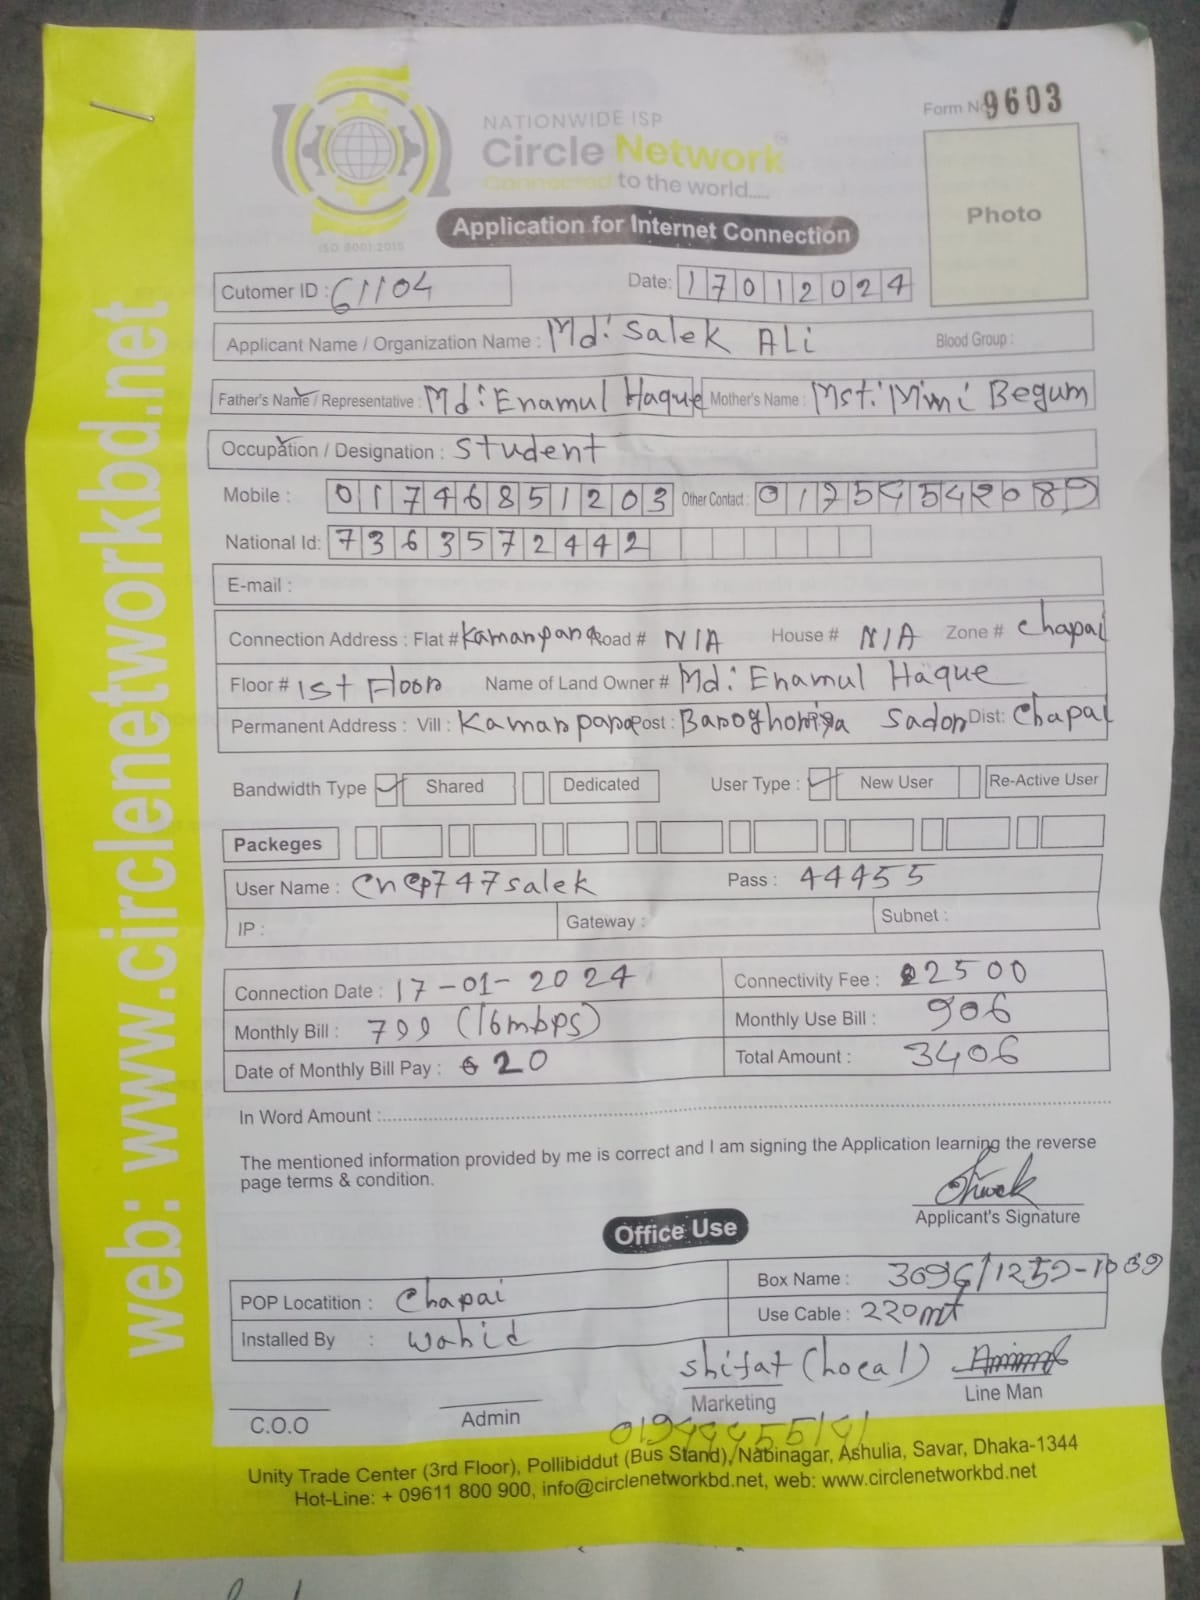 Form No 9603
NATIONWIDE ISP
Circle Network
Connected to the world.....
ISO 9001:2015
Photo
Application for Internet Connection
Cutomer ID : 61104 Date: 17012024
Applicant Name / Organization Name : Md: Salek ALi Blood Group :
Father's Name / Representative : Md: Enamul Haque Mother's Name : Mst: Mimi Begum
Occupation / Designation : Student
Mobile : 01746851203 Other Contact : 01754542089
National Id: 7363572442
E-mail :
Connection Address : Flat # Kamarpara Road # N/A House # N/A Zone # Chapai
Floor # 1st Floor Name of Land Owner # Md: Enamul Haque
Permanent Address : Vill : Kamarpara Post : Baroghoriya Sador Dist: Chapai
Bandwidth Type Shared Dedicated User Type : New User Re-Active User
Packeges
User Name : cncp747salek Pass : 44455
IP : Gateway : Subnet :
Connection Date : 17-01-2024 Connectivity Fee : 2500
Monthly Bill : 799 (16mbps) Monthly Use Bill : 906
Date of Monthly Bill Pay : 20 Total Amount : 3406
In Word Amount :
The mentioned information provided by me is correct and I am signing the Application learning the reverse
page terms & condition.
Applicant's Signature
Office Use
POP Locatition : Chapai Box Name :
Installed By : Wahid Use Cable : 220mt
shifat (local)
C.O.O Admin Marketing Line Man
Unity Trade Center (3rd Floor), Pollibiddut (Bus Stand), Nabinagar, Ashulia, Savar, Dhaka-1344
Hot-Line: + 09611 800 900, info@circlenetworkbd.net, web: www.circlenetworkbd.net
web: www.circlenetworkbd.net